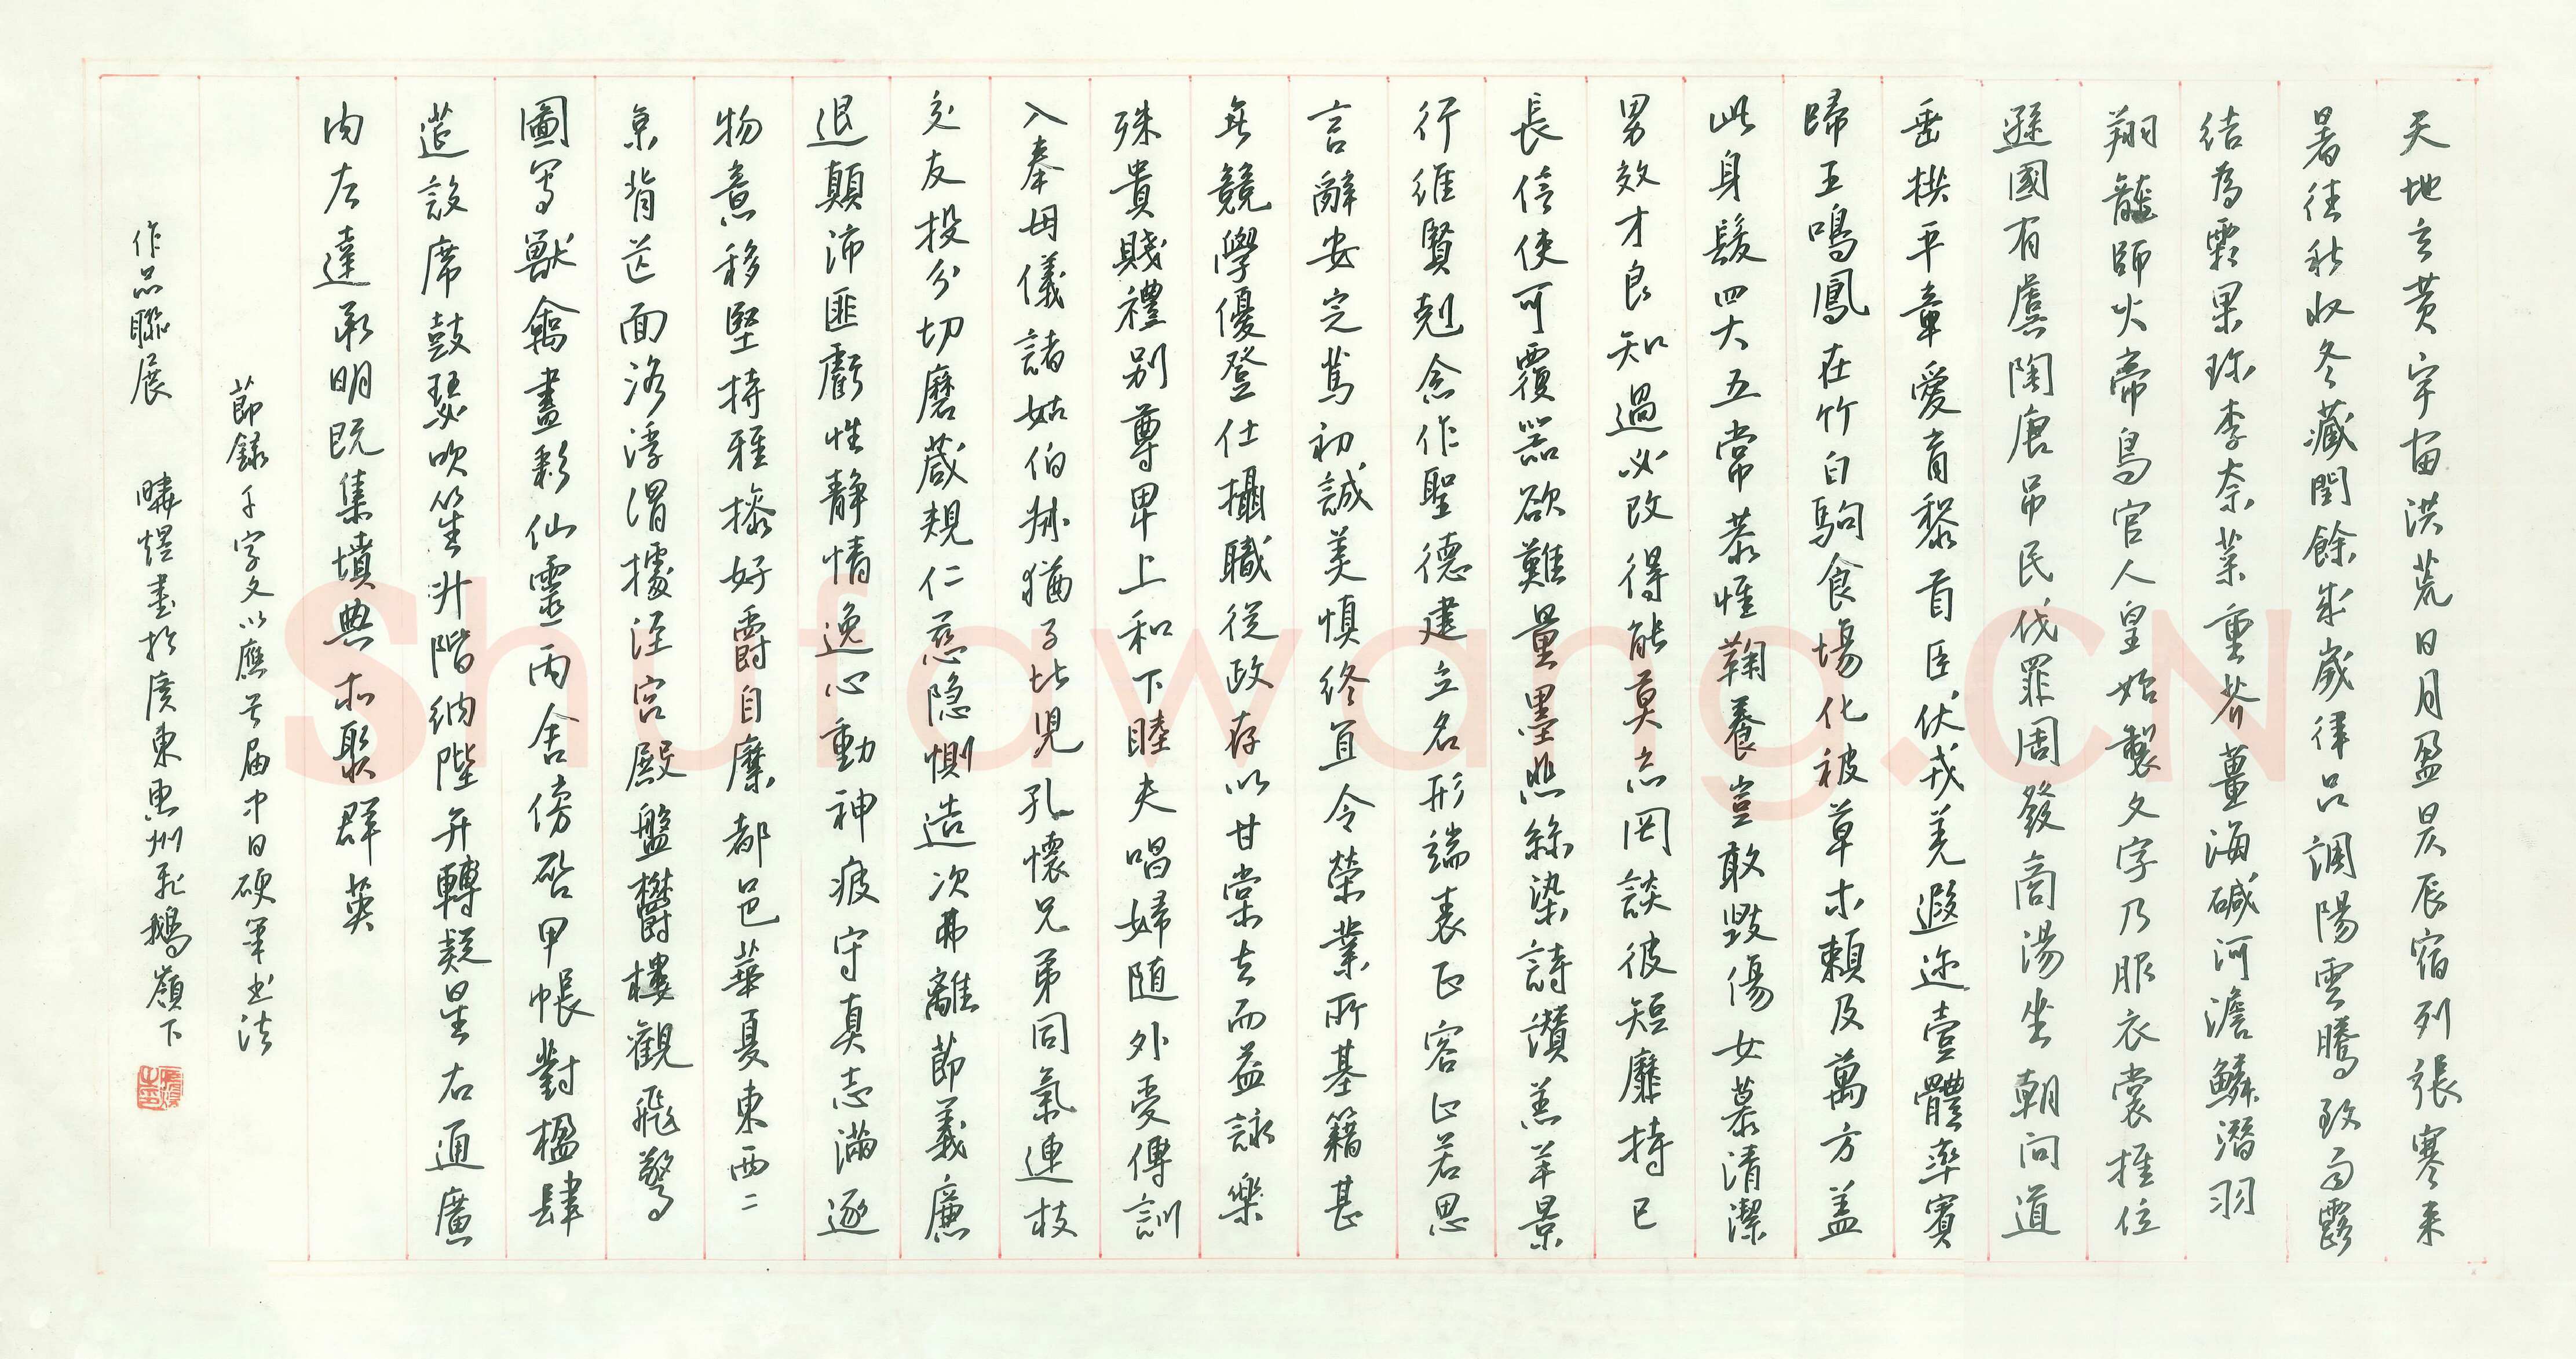 天地玄黄宇宙洪荒日月盈昃辰宿列張寒来
暑往秋收冬藏閏餘成歲律吕調陽雲騰致雨露
結為霜果珍李柰菜重芥薑海碱河澹鱗潛羽
翔龍師火帝鳥官人皇始製文字乃服衣裳推位
遜國有虞陶唐吊民伐罪周發商湯坐朝問道
垂拱平章愛育黎首臣伏戎羌遐迩壹體率賓
歸王鳴鳳在竹白駒食場化被草木賴及萬方盖
此身髮四大五常恭惟鞠養豈敢毀傷女慕清潔
男效才良知過必改得能莫忘罔談彼短靡恃己
長信使可覆器欲難量墨悲絲染詩讚羔羊景
行維賢剋念作聖德建立名形端表正容止若思
言辭安定篤初誠美慎終宜令榮業所基籍甚
無競學優登仕攝職從政存以甘棠去而益詠樂
殊貴賤禮别尊卑上和下睦夫唱婦随外受傅訓
入奉母儀諸姑伯叔猶子比兒孔懷兄弟同氣連枝
交友投分切磨箴規仁慈隐惻造次弗離節義廉
退顛沛匪虧性静情逸心動神疲守真志滿逐
物意移堅持雅操好爵自縻都邑華夏東西二
京背芒面洛浮渭據涇宫殿盤欝樓觀飛驚
圖寫獸禽畫彩仙靈丙舍傍啓甲帳對楹肆
筵設席鼓瑟吹笙升階納陛弁轉疑星右通廣
内左達承明既集墳典亦聚群英
節録千字文以應首届中日硬筆书法
作品聯展 煜書於廣東惠州飛鵝嶺下
Shufawang.CN